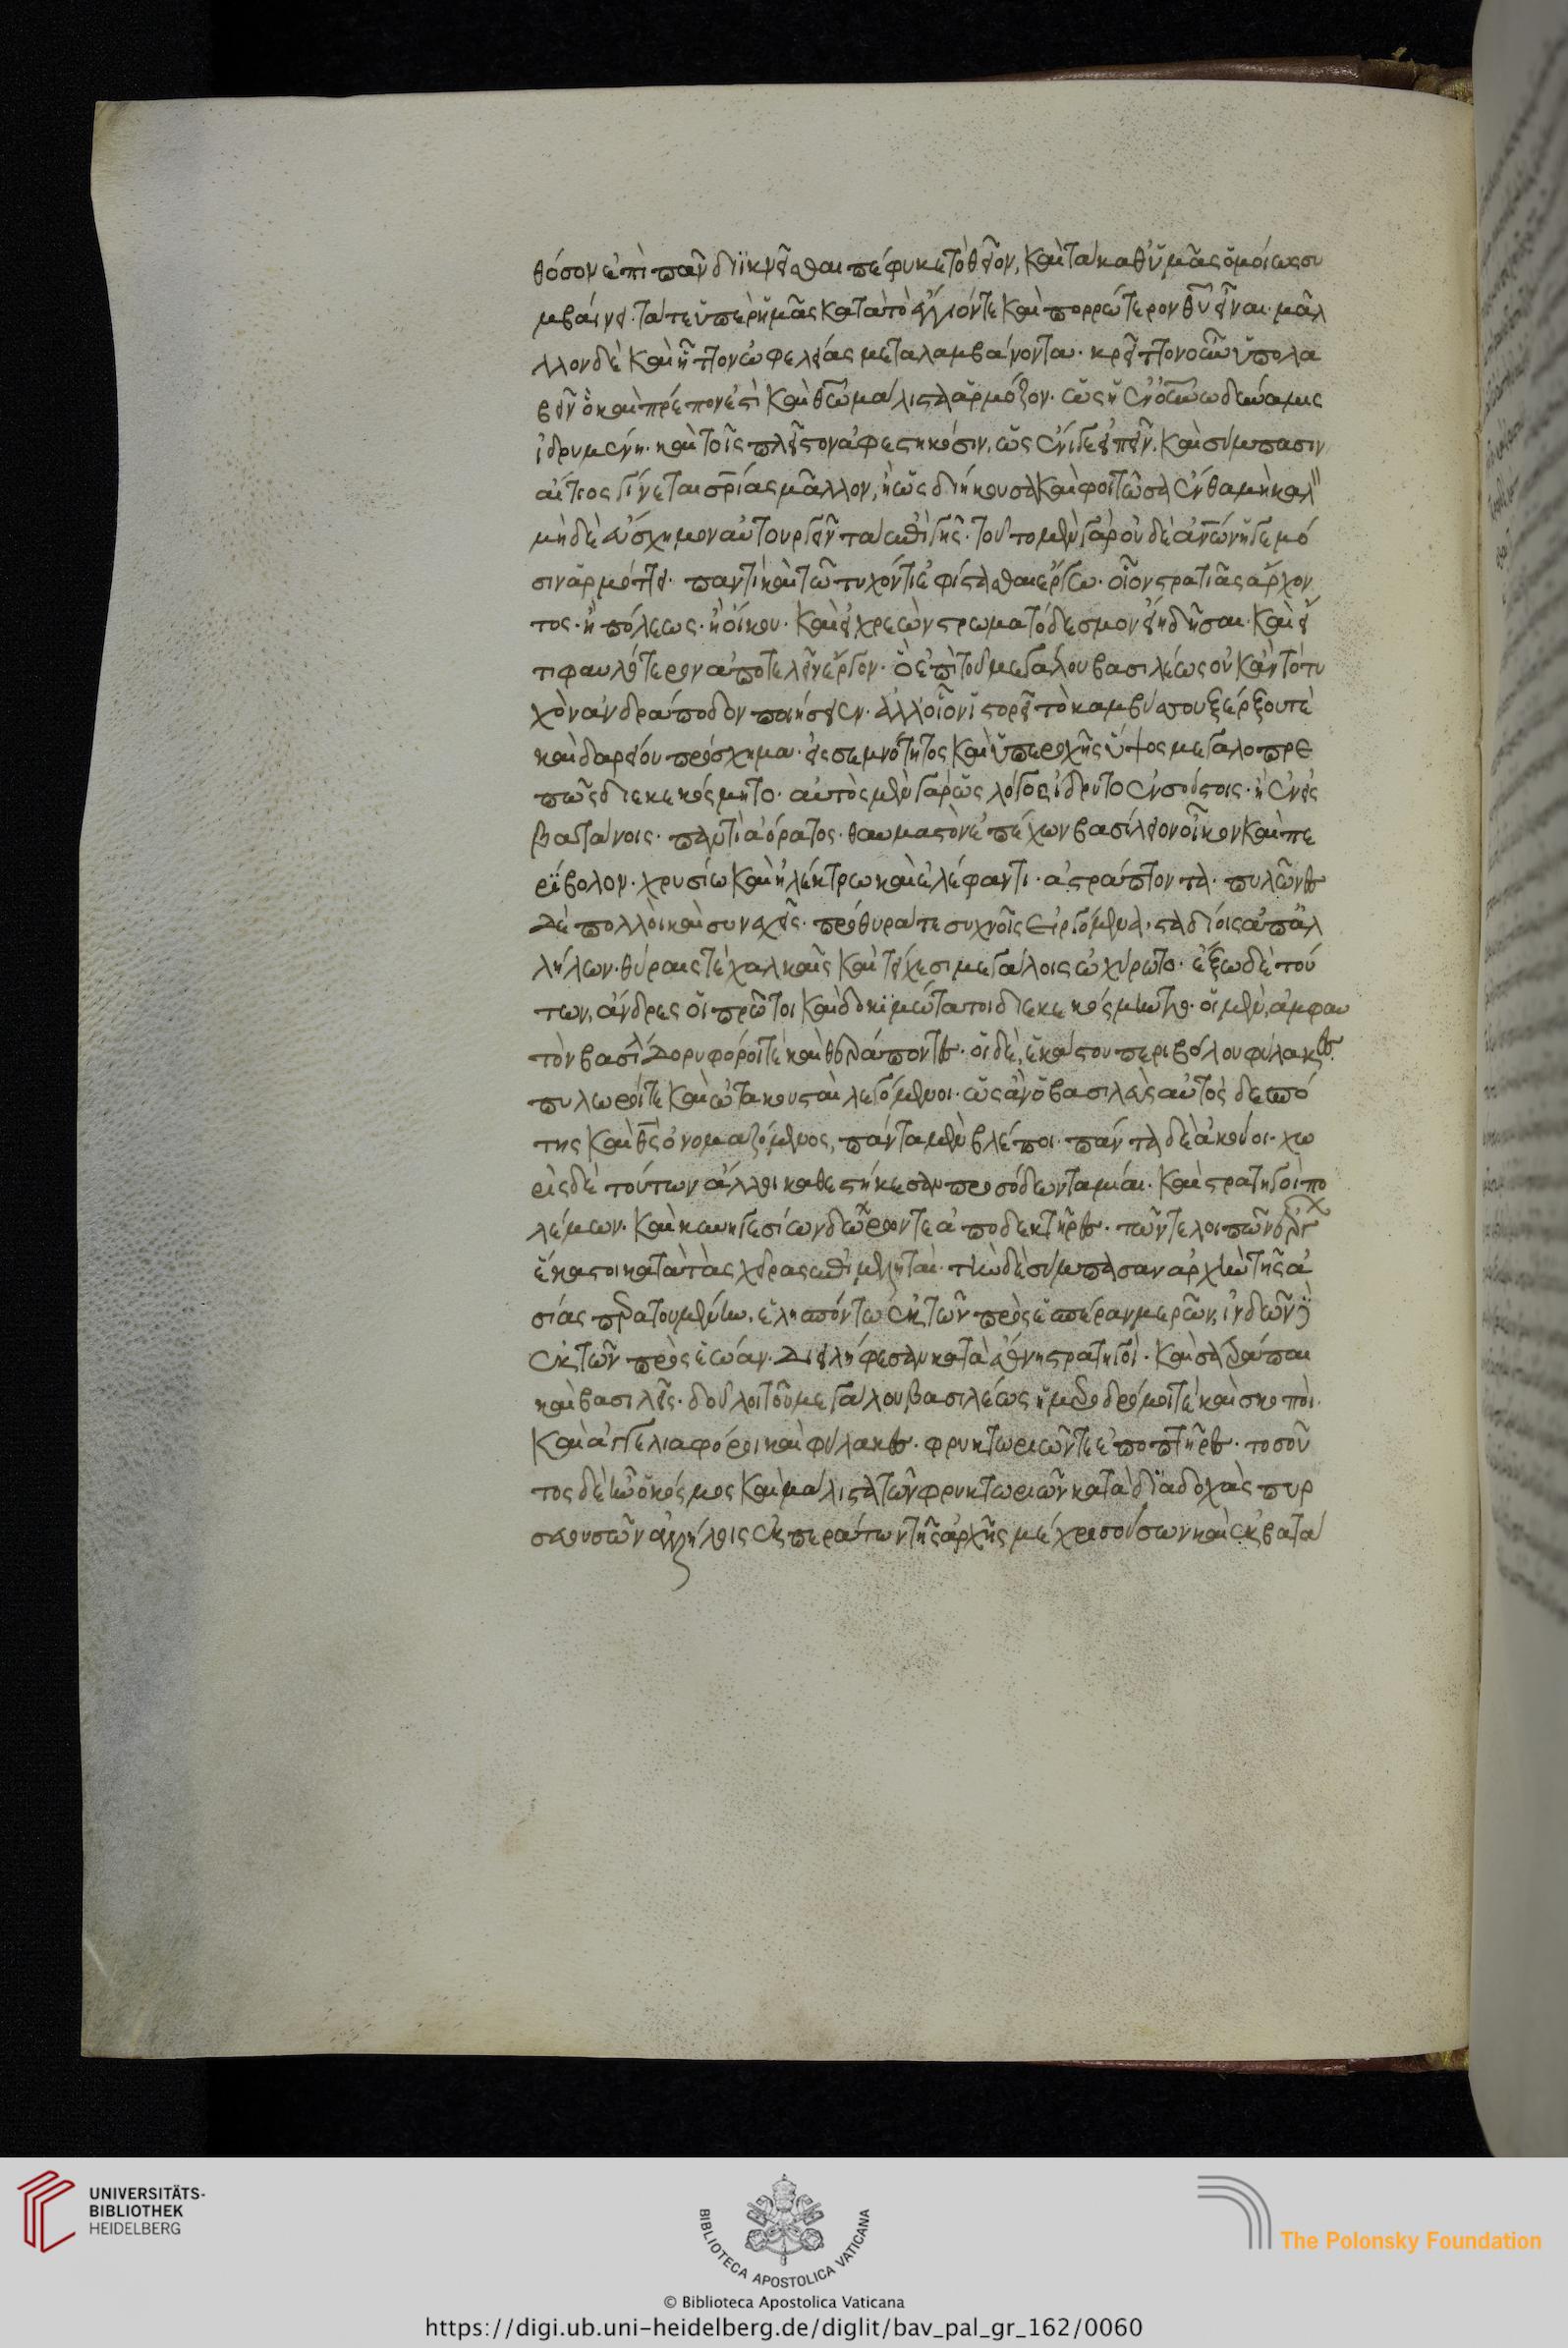 θόσον ἐπὶ πᾶν διϊκνεῖσθαι πέφυκε τὸ θεῖον, καὶ τὰ καθ' ὑμᾶς ὁμοίως συ
μβαίνει. τά τε ὑπὲρ ἡμᾶς κατὰ τὸ ἔγγιόν τε καὶ πορρώτερον θῦ εἶναι. μᾶλ
λλον δὲ καὶ ἧττον ὠφελείας μεταλαμβάνοντα. κρεῖττον οὖν ὑπολα
βεῖν ὃ καὶ πρέπον ἐστὶ καὶ θῶ μάλιστα ἁρμόζον. ὡς ἡ ἐν οὐνῶ δύναμις
ἱδρυμένη. καὶ τοῖς πλεῖστον ἀφεστηκόσιν, ὡς ἔνι γε εἰπεῖν. καὶ σύμπασιν
αἴτιος γίνεται σρίας μᾶλλον, ἢ ὡς διήκουσα καὶ φοιτῶσα ἔνθα μὴ καλ
μηδὲ εὔσχημον αὐτουργεῖν τὰ ἐπὶ γῆς. τοῦτο μὲν γὰρ οὐδὲ ἀνων ἡγεμό
σιν ἁρμόττει. παντὶ καὶ τῶ τυχόντι ἐφίστασθαι ἔργω. οἷον στρατιᾶς ἄρχον
τος. ἢ πόλεως. ἢ οἴκου. καὶ εἰ χρεὼν στρωματόδεσμον εἴη δῆσαι. καὶ εἴ
τι φαυλότερον ἀποτελεῖν ἔργον. ὃ ἐπὶ τοῦ μεγάλου βασιλέως οὐκ ἂν τὸ τυ
χὸν ἀνδράποδον ποιήσειεν. ἀλλ' οἷον ἱστορεῖτο καμβύσου ξέρξου τὲ
καὶ δαρείου πρόσχημα. εἰς σεμνότητος καὶ ὑπεροχῆς ὕψος μεγαλοπρε
πῶς διεκεκόσμητο. αὐτὸς μὲν γὰρ ὡς λόγος ἵδρυτο ἐν σούσοις. ἢ ἐν ἐκ
βατάνοις. παντὶ ἀόρατος. θαυμαστὸν ἐπέχων βασίλειον οἶκον καὶ πε
ρίβολον. χρυσίω καὶ ἠλέκτρω καὶ ἐλέφαντι. ἀστράπτοντα. πυλῶνες
δὲ πολλοὶ καὶ συνεχεῖς. πρόθυρά τε συχνοῖς εἰργόμενα, σταδίοις ἀπ' ἀλ
λήλων. θύραις τὲ χαλκαῖς καὶ τείχεσι μεγάλοις ὠχύρωτο. ἔξω δὲ τού
των, ἄνδρες οἱ πρῶτοι καὶ δοκιμώτατοι διεκεκόσμηντο. οἱ μὲν, ἀμφ' αυ
τὸν βασιλ δορυφόροί τὲ καὶ θεράποντες. οἱ δὲ, ἑκάστου περιβόλου φύλακες.
πυλωροί τε καὶ ὠτακουσταὶ λεγόμενοι. ὡς ἂν ὁ βασιλεὺς αὐτὸς δεσπό
της καὶ θς ὀνομαζόμενος, πάντα μὲν βλέποι. πάντα δὲ ἀκούοι. χω
ρὶς δὲ τούτων ἄλλοι καθεστήκεσαν προσόδων ταμίαι. καὶ στρατηγοὶ πο
λέμων. καὶ κυνηγεσίων δώρων τε ἀποδεκτῆρες. τῶν τε λοιπῶν ἔργ
ἕκαστοι κατὰ τὰς χρείας ἐπιμεληταί. τὴν δὲ σύμπασαν ἀρχὴν τῆς ἀ
σίας περατουμένην. ἑλησπόντω ἐκ τῶν πρὸς ἑσπέραν μερῶν, ἰνδῶν
ἐκ τῶν πρὸς ἑώαν. διειλήφεσαν κατὰ ἔθνη στρατηγοὶ. καὶ σατράπαι
καὶ βασιλεῖς. δοῦλοι τοῦ μεγάλου βασιλέως ἡμεροδρόμοι τὲ καὶ σκοποὶ.
καὶ ἀγγελιαφόροι καὶ φύλακες. φρυκτωριῶν τε ἐποπτῆρες. τοσοῦ
τος δὲ ἦν ὁ κόσμος καὶ μάλιστα τῶν φρυκτωριῶν κατὰ διαδοχὰς πυρ
σευουσῶν ἀλλήλοις ἐκ περάτων τῆς ἀρχῆς μέχρι σούσων καὶ ἐκβατά
UNIVERSITÄTS-
BIBLIOTHEK
HEIDELBERG
BIBLIOTECA APOSTOLICA VATICANA
The Polonsky Foundation
© Biblioteca Apostolica Vaticana
https://digi.ub.uni-heidelberg.de/diglit/bav_pal_gr_162/0060